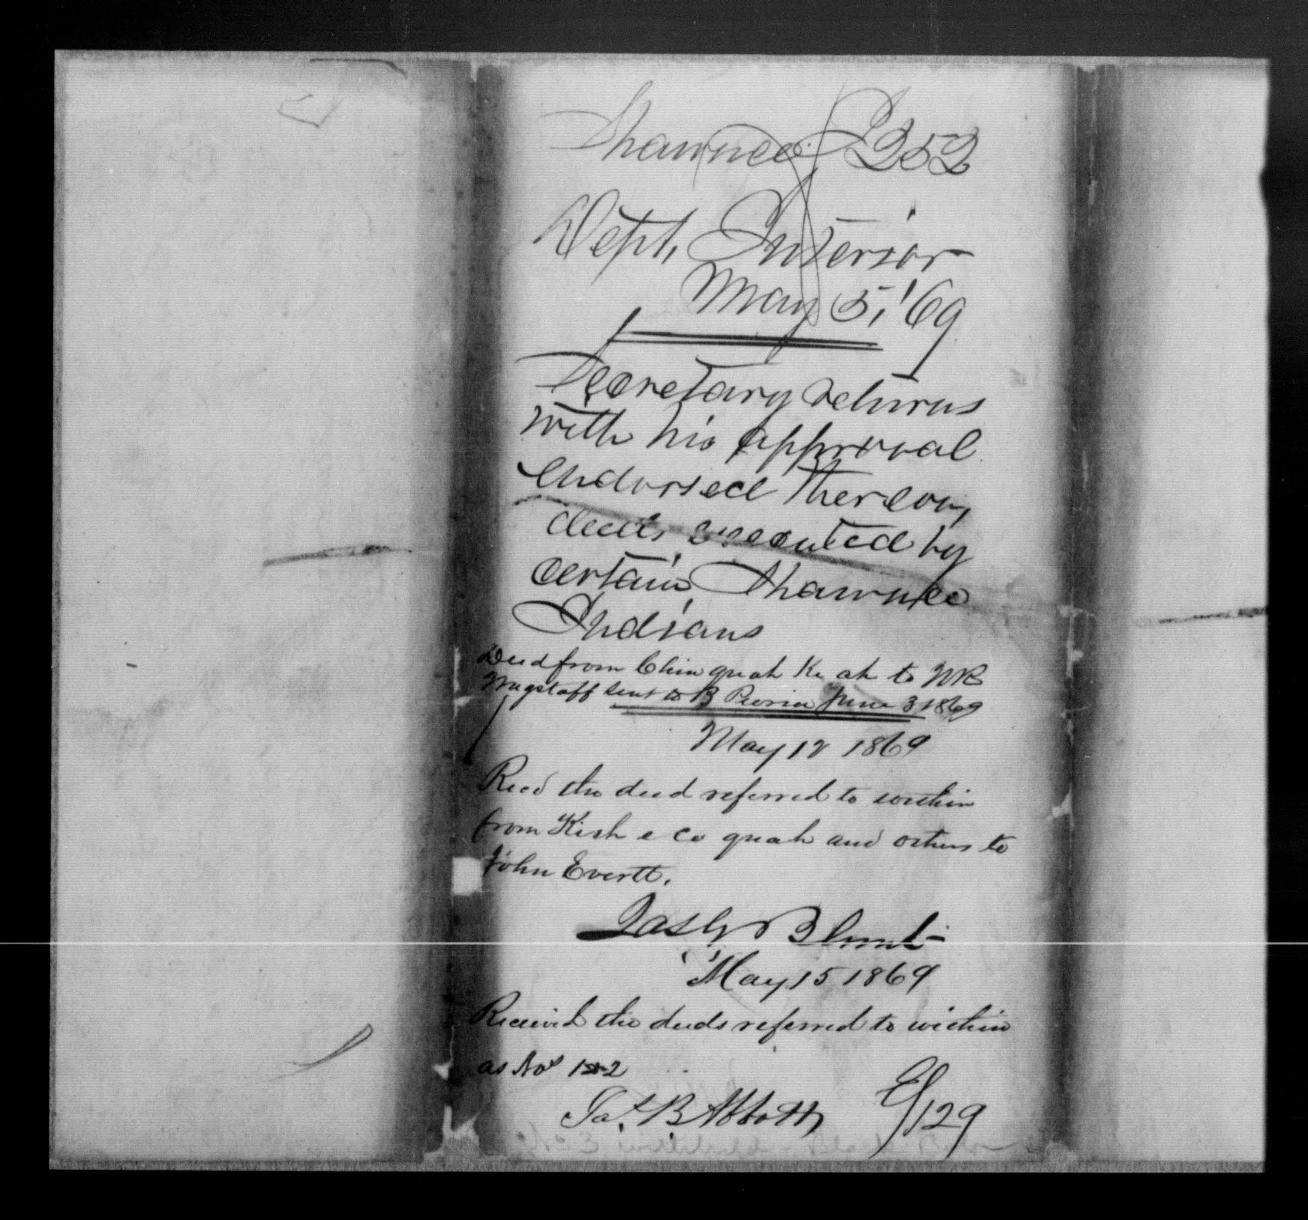 Shawnee I 252
Dept. Interior
May 5, '69
Secretary returns
with his approval
endorsed thereon,
deeds executed by
certain Shawnee
Indians
Deed from Chin quah Ke ah to WR
Wagstaff sent to B Peoria June 3 1869
May 12 1869
Recd the deed referred to within
from Kish e co quah and others to
John Evertt.
Jas G Blunt
May 15 1869
Received the deeds referred to within
as Nos 1 & 2
Jas. B Abbott
E/129